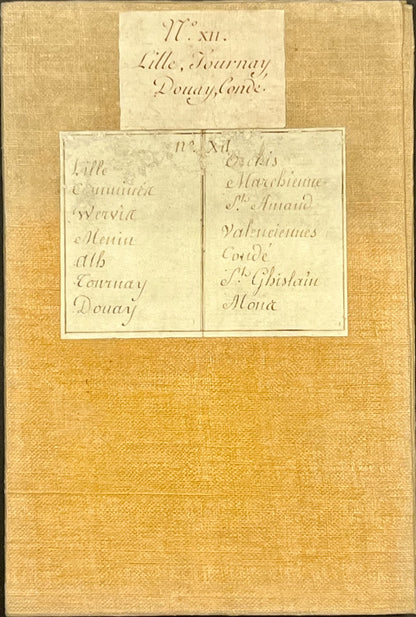 N.° XII.
Lille, Tournay
Douay, Condé.
n.° XII
Lille
Comminea
Wervia
Menin
Ath
Tournay
Douay
Orchis
Marchienne
S.t Amand
Valenciennes
Condé
S.t Ghislain
Mona